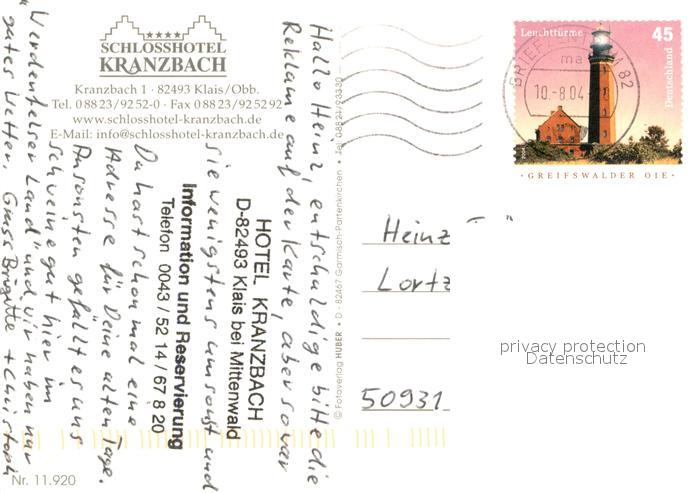 SCHLOSSHOTEL
KRANZBACH
Kranzbach 1 · 82493 Klais/Obb.
Tel. 0 88 23/92 52-0 · Fax 0 88 23/92 52 92
www.schlosshotel-kranzbach.de
E-Mail: info@schlosshotel-kranzbach.de
Hallo Heinz, entschuldige bitte die
Reklame auf der Karte, aber so war
sie wenigstens umsonst und
Du hast schon mal eine
Adresse für Deine alten Tage.
Ansonsten gefällt es uns
scheine gut hier im
"Werdenfelser Land" und wir haben nur
gutes Wetter. Gruss Brigitte + Christoph
HOTEL KRANZBACH
D-82493 Klais bei Mittenwald
Information und Reservierung
Telefon 0043 / 52 14 / 67 8 20
© Fotoverlag HUBER · D - 82467 Garmisch-Partenkirchen · Tel. 08821/93330
Nr. 11.920
Leuchttürme
45
Deutschland
GREIFSWALDER OIE
BRIEFZENTRUM 82
ma
10.-8.04
Heinz
Lortz
50931
privacy protection
Datenschutz